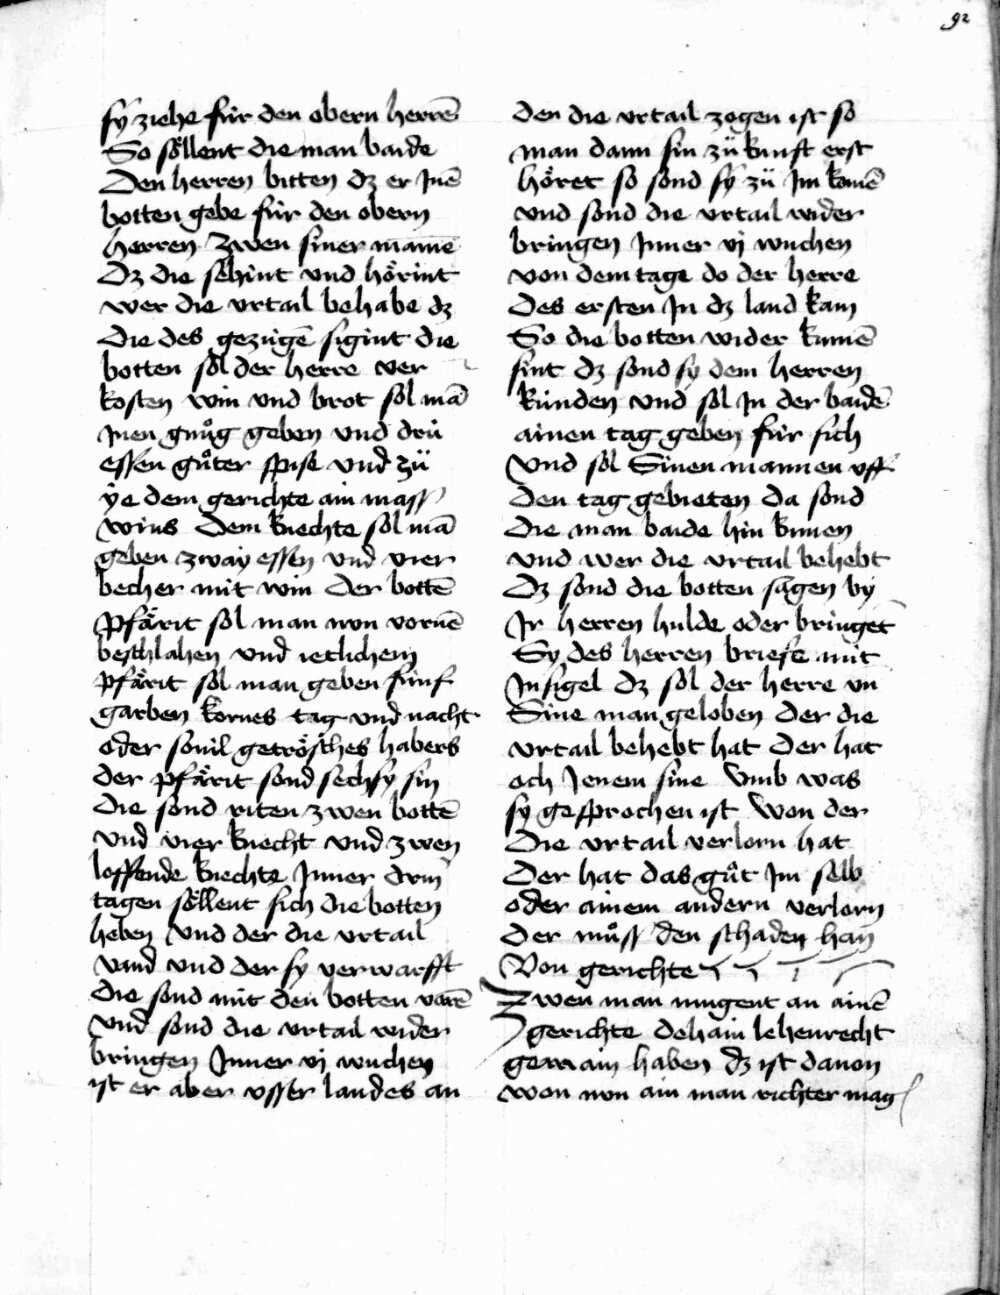 92
sy ziehe für den obern herrē
So söllent die man baide
Den herren bitten dz er Jnē
botten gebe für den obern
herren zwen siner mannē
Dz die sehint vnd hörint
wer die vrtail behabe dz
Die des gezügē sigint die
botten sol der herre ver
kosten win vnd brot sol mā
Jnen gnůg geben vnd drü
essen gůter spise vnd zü
ye dem gerichte ain mass
wins Dem knechte sol mā
geben zway essen vnd vier
becher mit win Der bottē
Pfärit sol man von vornē
beschlahen vnd ietlichem
pfärit sol man geben fünf
garben kornes tag vnd nacht
oder souil getrösches habers
der pfärit sond sechsy sin
die sond riten zwen bottē
vnd vier knecht vnd zwen
loffende knechte Jnner drin
tagen söllent sich die botten
heben vnd der die vrtail
vand vnd der sy verwarfft
die sond mit den botten varē
vnd sond die vrtail wider
bringen Jnner vj wuchen
ist er aber vsser landes an
den die vrtail zogen ist so
man dann sin zükunft erst
höret so sond sy zü Jm komē
vnd sond die vrtail wider
bringen Jnner vj wuchen
von dem tage do der herre
des ersten Jn dz land kam
So die botten wider kumē
sint dz sond sy dem herren
künden vnd sol Jn der baidē
ainen tag geben für sich
vnd sol Sinen mannen vff
den tag gebieten da sond
die man baide hin kumen
vnd wer die vrtail behebt
Dz sond die botten sagen by
Jr herren hulde oder bringēt
Sy des herren briefe mit
Jnsigel dz sol der herre vn
Sine man geloben Der die
vrtail behebt hat Der hat
och Jenem sine Vmb was
sy gesprochen ist Won der
Die vrtail verlorn hat
Der hat das gůt Jm selb
oder ainem andern verlorn
Der můss den schaden han
Von gerichte
Zwen man mugent an ainē
gerichte dehain lehenrecht
gemain haben dz ist dauon
won nun ain man richter mag